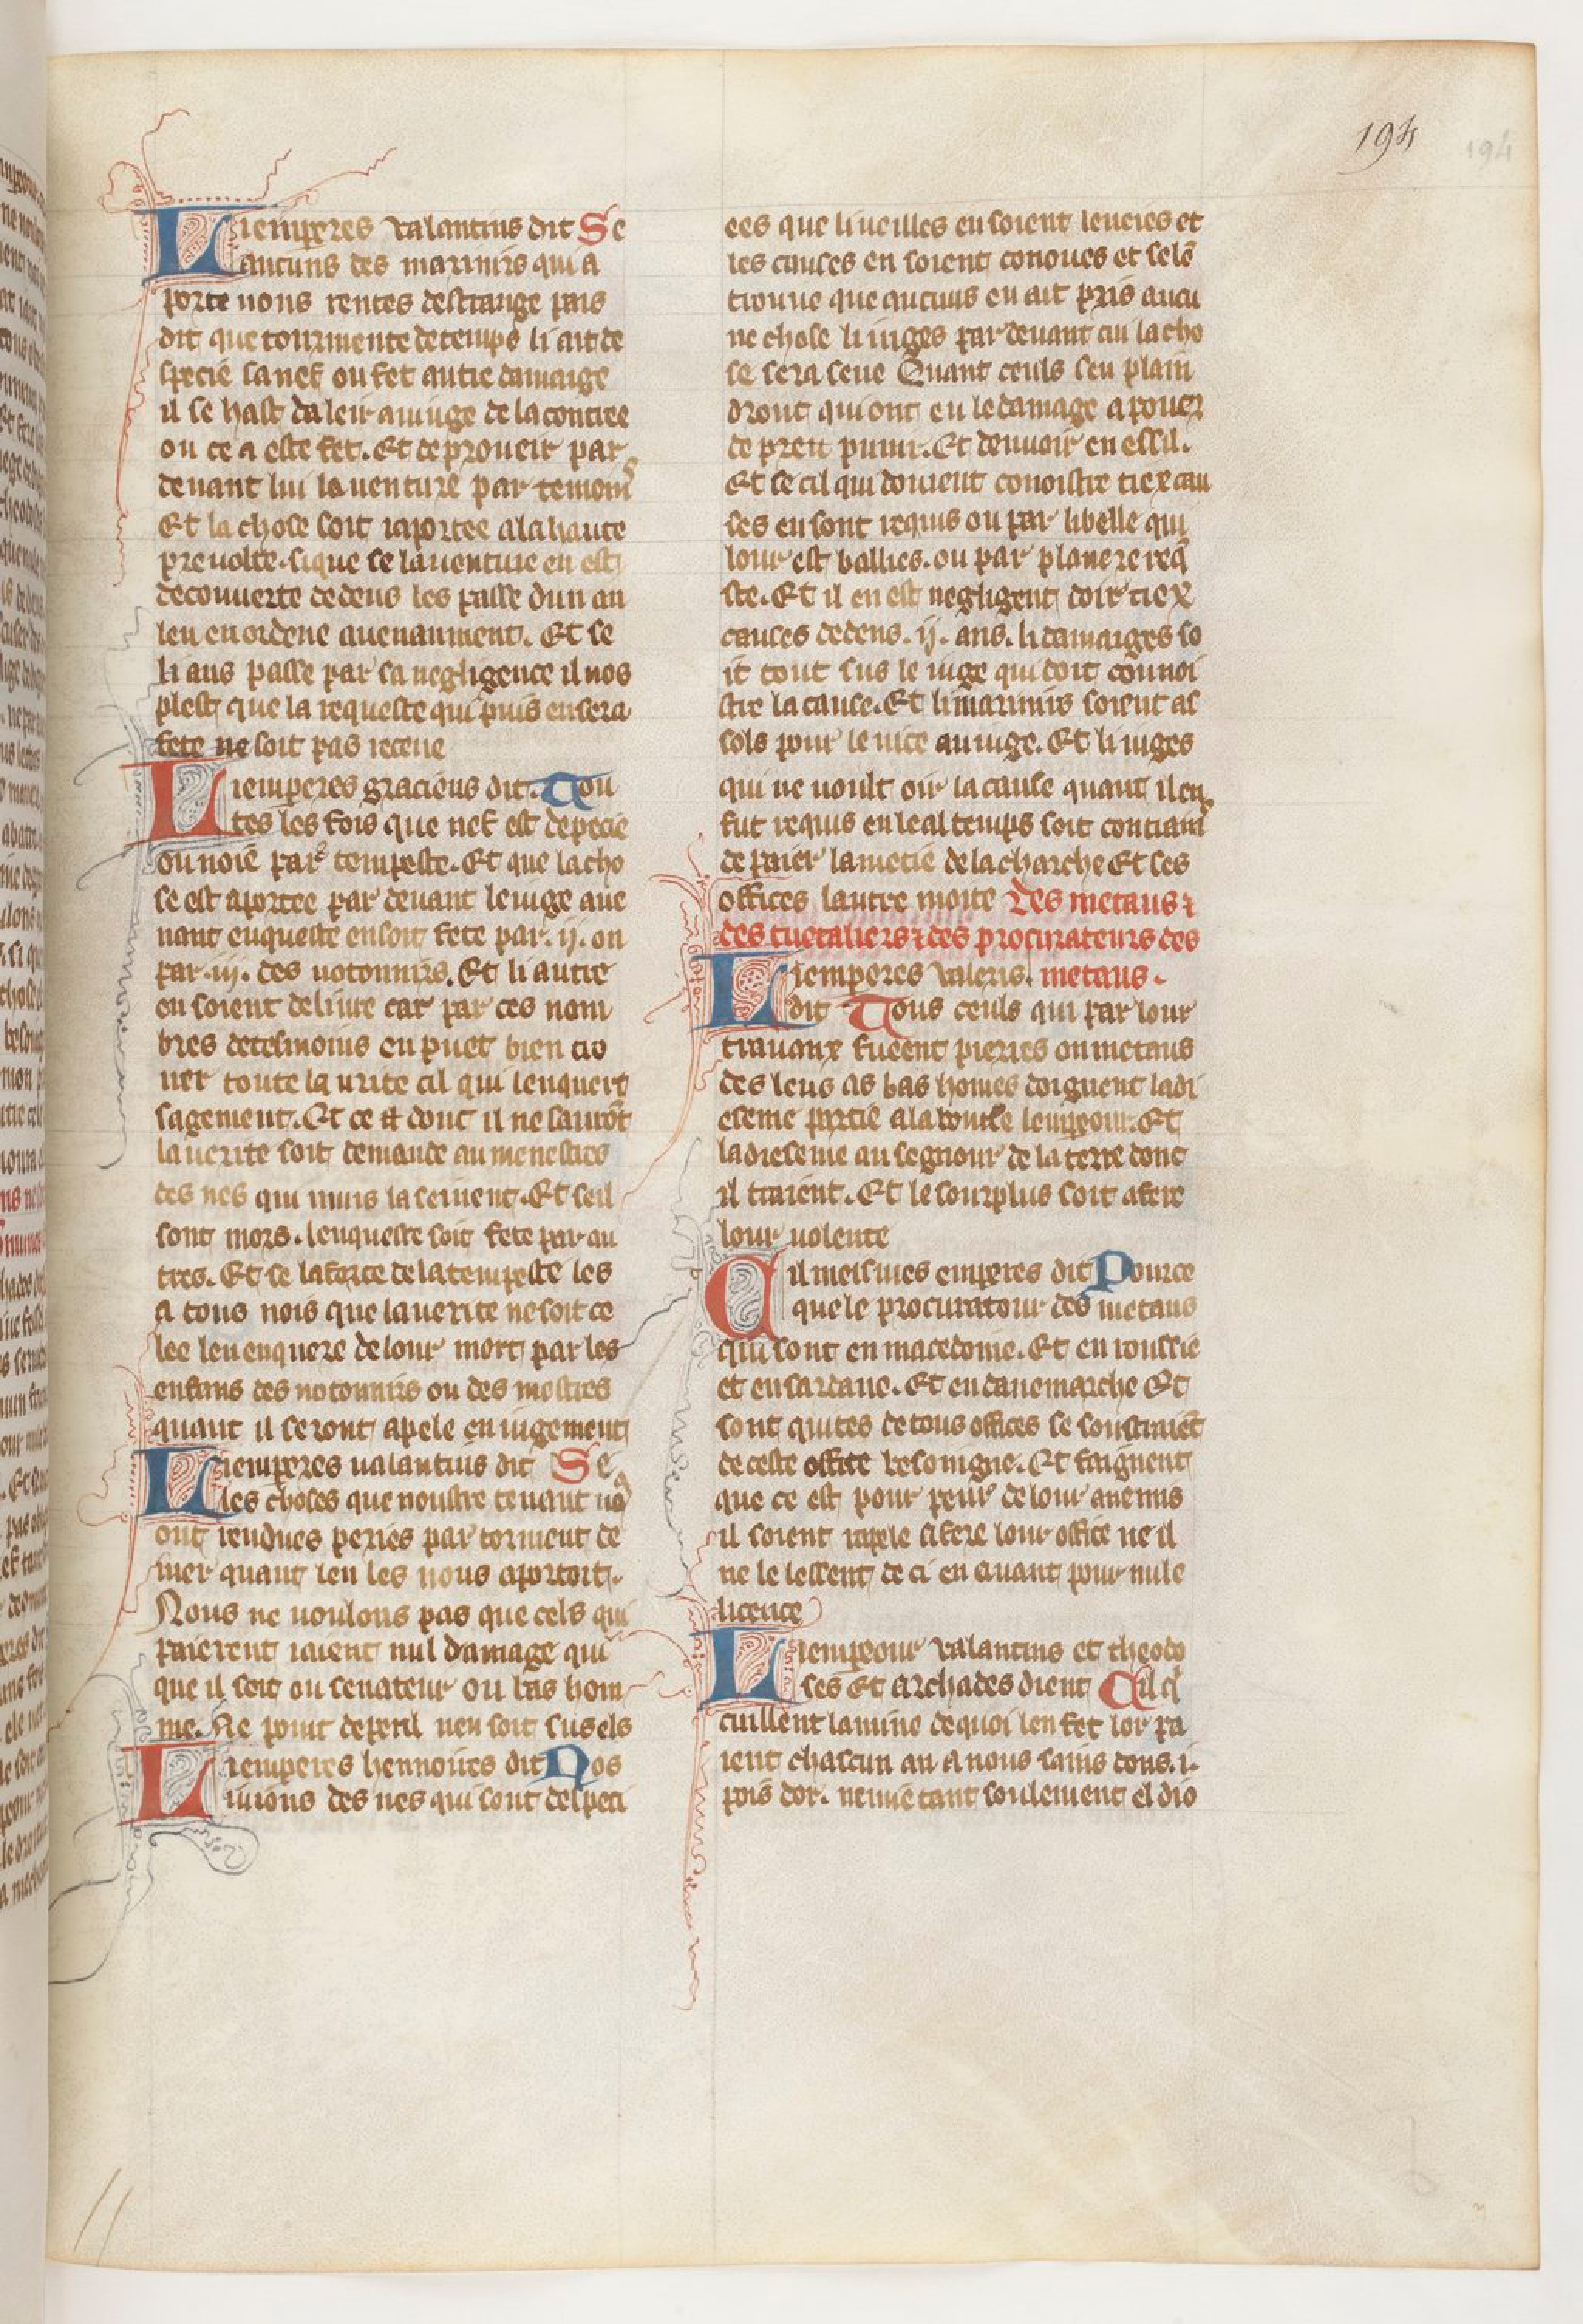 194
194
Liemperes valantins dit Se
aucuns des mariniers qui a
porte nous rentes destrange pais
dit que tourmente de temps li ait de
specie sa nef ou fet autre damaige
il se hast daleir au iuge de la contree
ou ce a este fet. Et de proueir par
deuant lui lauenture par temoins
Et la chose soit raportee a la haute
preuoste. si que se lauenture en est
decouuerte dedens les passe dun an
leu en ordene auenanment. Et se
li ans passe par sa negligence il nos
plest que la requeste qui puis en sera
fete ne soit pas receue
Liemperes graciens dit. Tou
tes les fois que nef est depecie
ou noie par tempeste. Et que la cho
se est aportee par deuant le iuge aue
nant enqueste en soit fete par .ij. ou
par .iij. des notonnirs. Et li autre
en soient deliure car par ces nom
bres de tesmoins en puet bien tro
uer toute la urite cil qui lenquert
sagement. Et ce est donc il ne sauront
la uerite soit demande au menestres
des nes qui mius la seiuent. Et seil
sont mors. lenqueste soit fete par au
tres. Et se la force de la tempeste les
a tous nois que la uerite ne soit ce
lee leu enquere de lour mort par les
enfans des notonnirs ou des mestres
quant il seront apele en iugement
Liemperes ualantins dit Se
les choses que noustre tenant no
ont rendues peries par torment de
mer quant leu les nous aportoit.
Nous ne uoulons pas que cels qui
paierent iaient nul damage qui
que il soit ou senateur ou bas hom
me. Ne point de peril nen soit sus els
Liemperes hennoires dit Nos
iuions des nes qui sont despeci
ees que li ueilles en soient leucies et
les causes en soient conoues et selen
trouue que aucuns en ait pris aucu
ne chose li iuges par deuant cui la cho
se sera seue Quant ceuls seu plain
dront qui ont eu le damage a pouer
de preit punir. Et denuoir en essil.
Et se cil qui doiuent conoistre tiex cau
ses en sont requis ou par libelle qui
lour est bollies. ou par planere reque
ste. Et il en est negligent doir tiex
causes dedens .ij. ans. li damaiges so
it tout sus le iuge qui doit connoi
stre la cause. Et li marinirs soient as
sols pour le uice au iuge. Et li iuges
qui ne uoult oir la cause quant il en
fut requis en leal temps soit contraint
de paier la metie de la charche Et ses
offices lautre moite Des metaus et
des cuetaliers et des procurateurs des
Liemperes valens. metaus.
dit Tous ceuls qui par lour
trauaux fueent pierres ou metaus
des leus as bas homes doignent la di
eseme partie a la boutse lempeour. Et
la dieseme au segnour de la terre donc
il traient. Et le sourplus soit a fere
lour uolente
Cil meismes emperes dit Pour ce
que le procuratour des metaus
qui sont en macedoine. Et en roussie
et en sardane. Et en danemarche Et
sont quites de tous offices se soustraient
de ceste office besoingne. Et faignent
que ce est pour peur de lour anemis
il soient rapele a fere lour office ne il
ne le lessent de ci en auant pour nule
licence
Liempeour valantins et theodo
ses Et archades dient Cil qui
cuillent la mine de quoi len fet lor pa
ient chascun an a nous sains dons .i.
pois dor. neimie tant soulement el dio